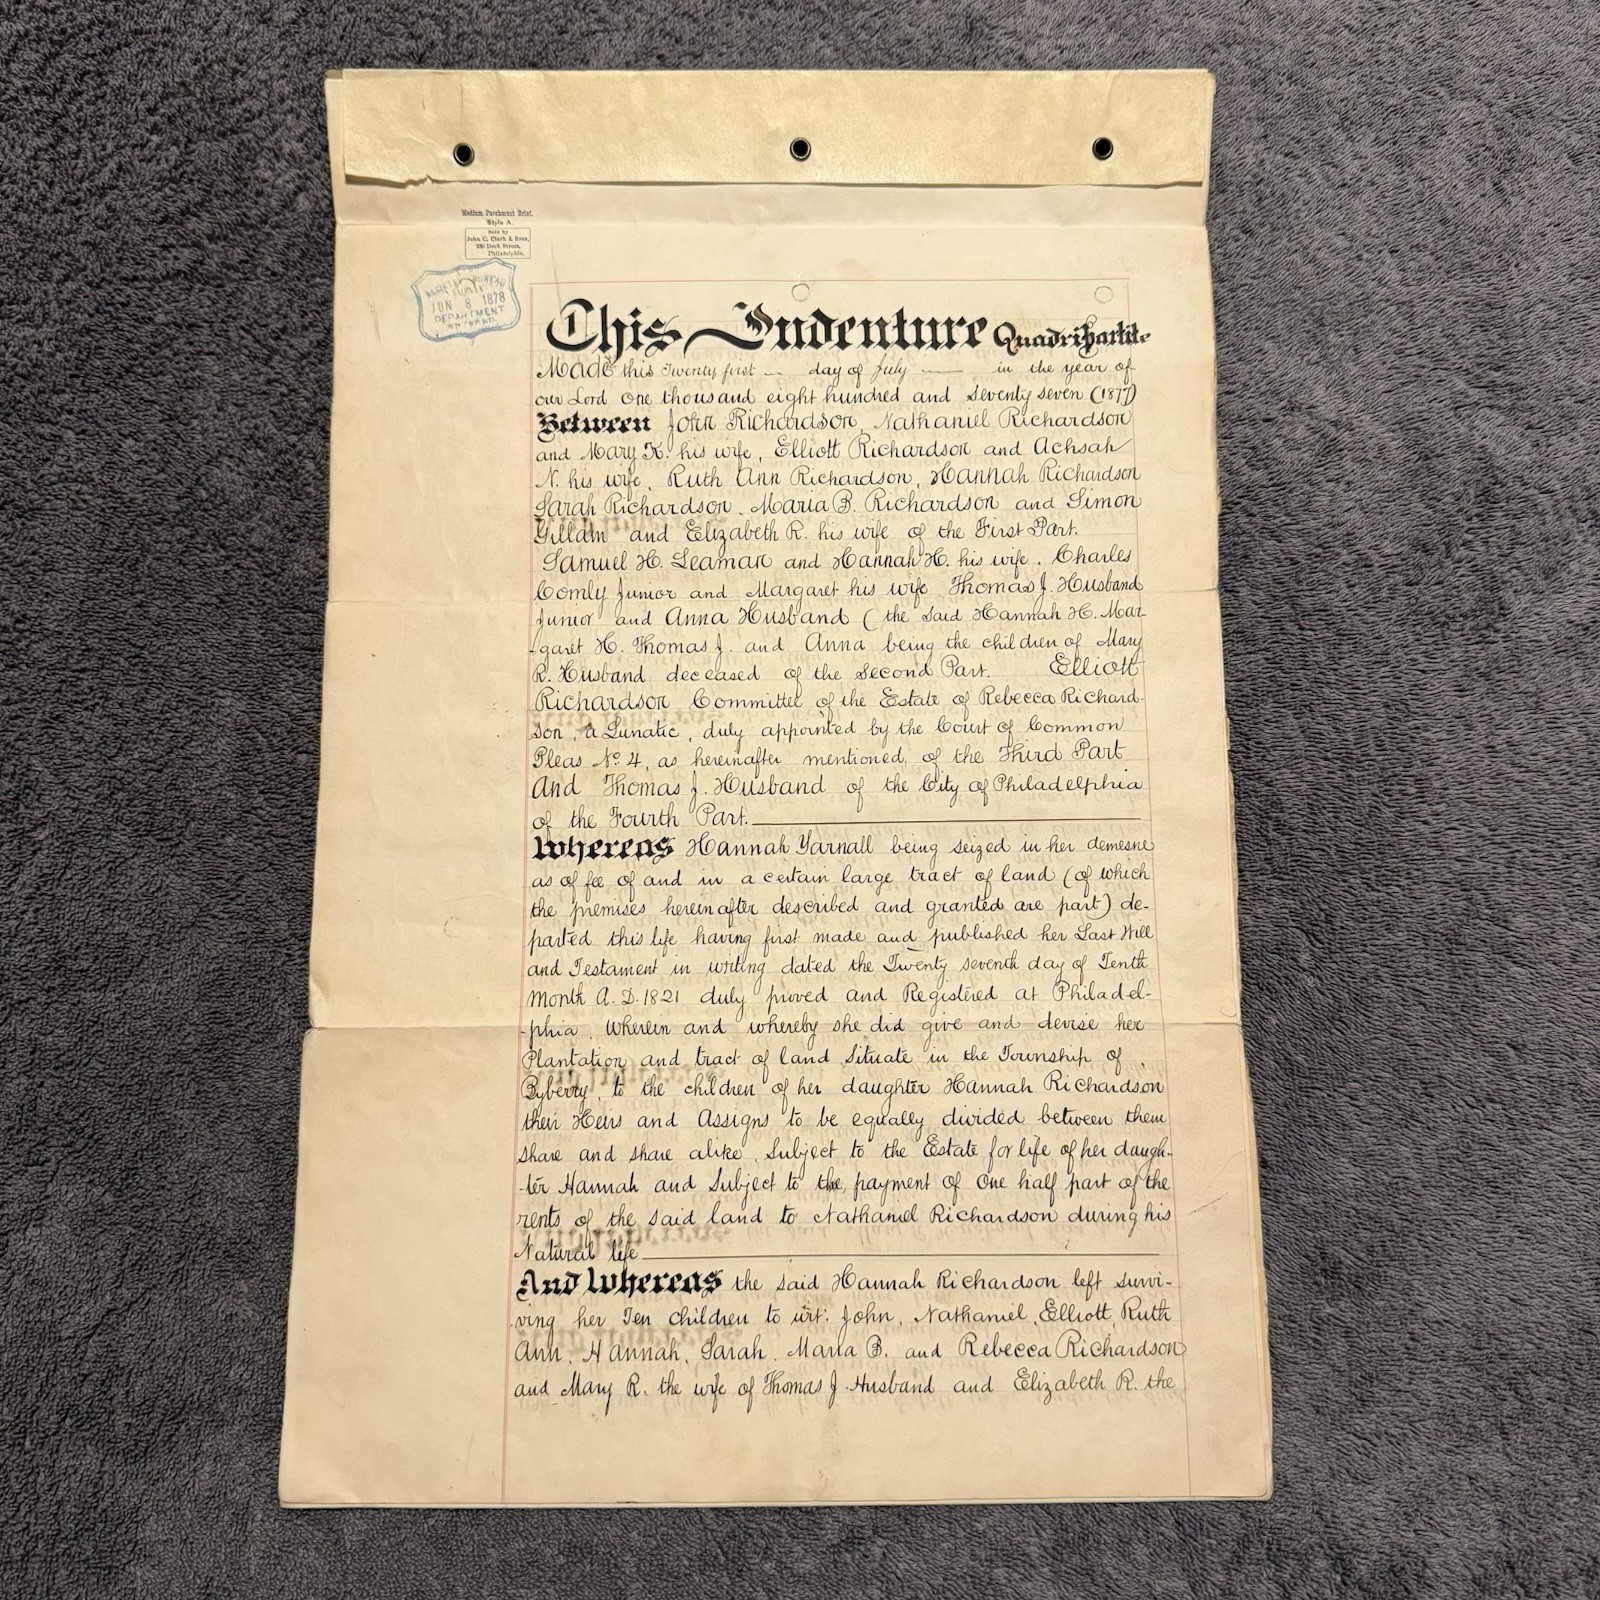 Medium Parchment Brief.
Style A.
Sold by
John C. Clark & Sons,
230 Dock Street,
Philadelphia.
JUN 8 1878
DEPARTMENT
This Indenture Quadripartite
Made this Twenty first day of July in the year of
our Lord one thousand eight hundred and seventy seven (1877)
Between John Richardson, Nathaniel Richardson
and Mary K. his wife, Elliott Richardson and Achsah
N. his wife, Ruth Ann Richardson, Hannah Richardson
Sarah Richardson, Maria B. Richardson and Simon
Gillam and Elizabeth R. his wife of the First Part.
Samuel H. Seaman and Hannah H. his wife, Charles
Comly Junior and Margaret his wife Thomas J. Husband
Junior and Anna Husband (the said Hannah H. Mar
-garet H. Thomas J. and Anna being the children of Mary
R. Husband deceased of the Second Part. Elliott
Richardson Committee of the Estate of Rebecca Richard-
son, a Lunatic, duly appointed by the Court of Common
Pleas No. 4, as hereinafter mentioned, of the Third Part
And Thomas J. Husband of the City of Philadelphia
of the Fourth Part.
Whereas Hannah Yarnall being seized in her demesne
as of fee of and in a certain large tract of land (of which
the premises hereinafter described and granted are part) de-
parted this life having first made and published her Last Will
and Testament in writing dated the Twenty seventh day of Tenth
Month A.D. 1821 duly proved and Registered at Philadel-
-phia, Wherein and whereby she did give and devise her
Plantation and tract of land Situate in the Township of
Byberry, to the children of her daughter Hannah Richardson
their Heirs and Assigns to be equally divided between them
share and share alike, Subject to the Estate for life of her daugh-
-ter Hannah and Subject to the payment of one half part of the
rents of the said land to Nathaniel Richardson during his
Natural life
And Whereas the said Hannah Richardson left survi-
-ving her Ten children to wit: John, Nathaniel, Elliott, Ruth
Ann, Hannah, Sarah, Maria B. and Rebecca Richardson
and Mary R. the wife of Thomas J. Husband and Elizabeth R. the